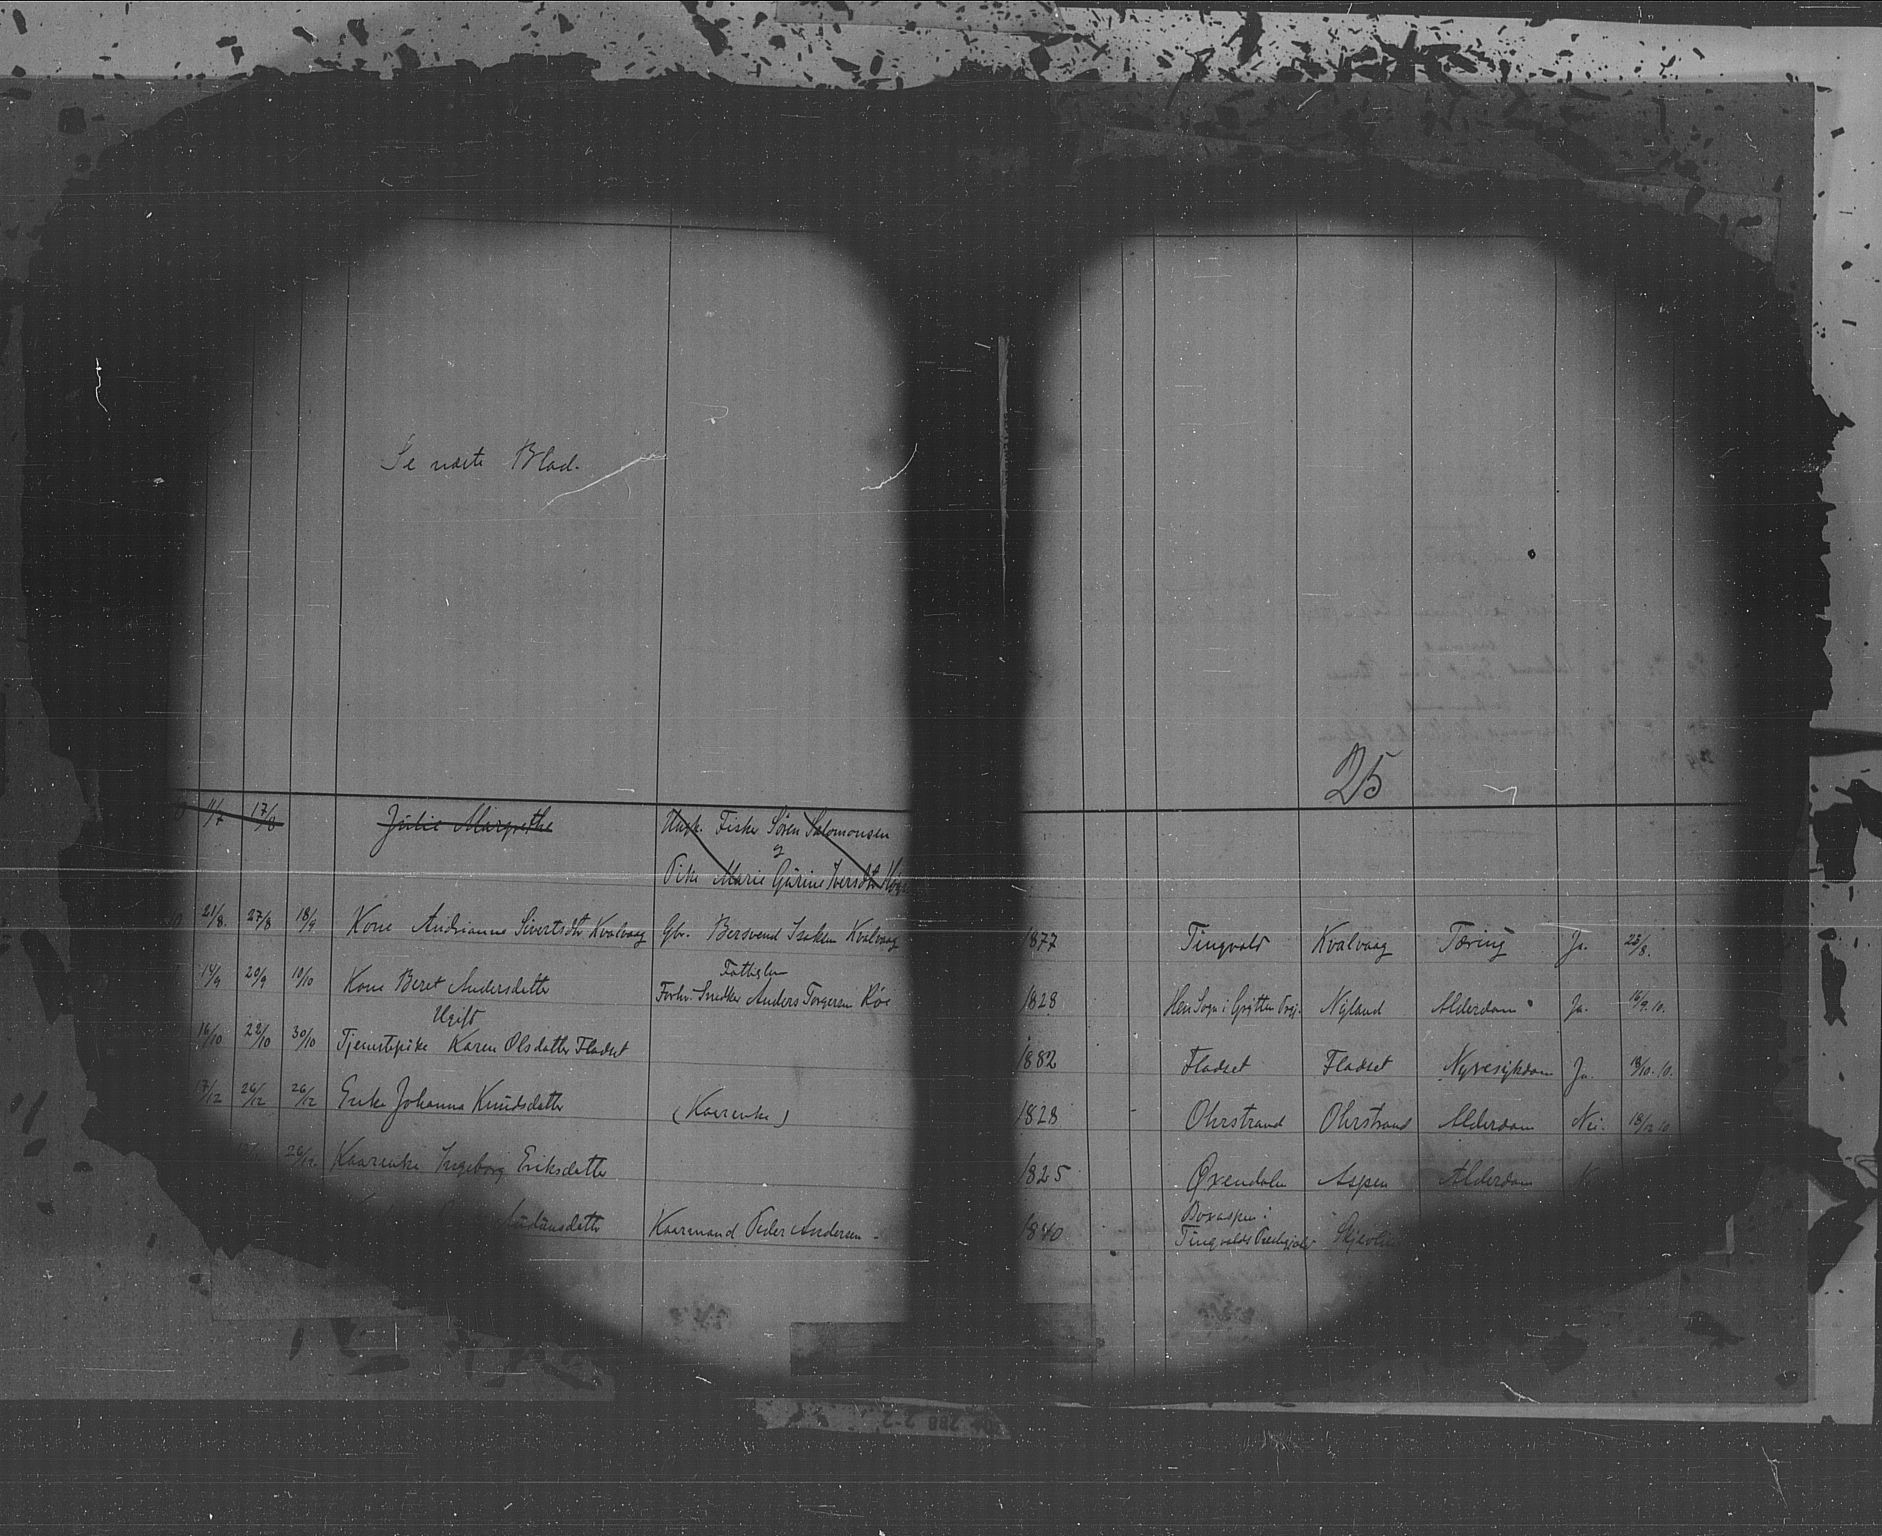 Se næste Blad.
25
4/7 17/8 Julie Margrethe Ungk. Fisker Søren Salomonsen
og
Pike Marie Gurine Iversdtr
21/8. 27/8 18/9 Kone Andrianna Sivertsdtr Kvalvaag Gbr. Bersvend Isaksen Kvalvaag 1877 Tingvold Kvalvaag Tæring Ja. 23/8.
Fattiglem
14/9 20/9 10/10 Kone Beret Andersdatter Forhv. Snedker Anders Torgersen Röe 1828 Hen Sogn i Grytten Prgj. Nyland Alderdom Ja. 16/9.10.
Ugift
16/10 22/10 30/10 Tjenestepike Karen Olsdatter Fladset 1882 Fladset Fladset Nyresygdom Ja. 18/10.10.
17/12 26/12 26/12 Enke Johanna Knudsdatter (Kaarenke) 1828 - Ohrstrand Ohrstrand Alderdom Nei. 18/12 10
26/12. Kaarenke Ingeborg Eriksdatter 1825 Øxendalen Aspen Alderdom
Boxaspen i
Audunsdatter Kaarmand Peder Andersen - 1840 Tingvolds Prestegjeld